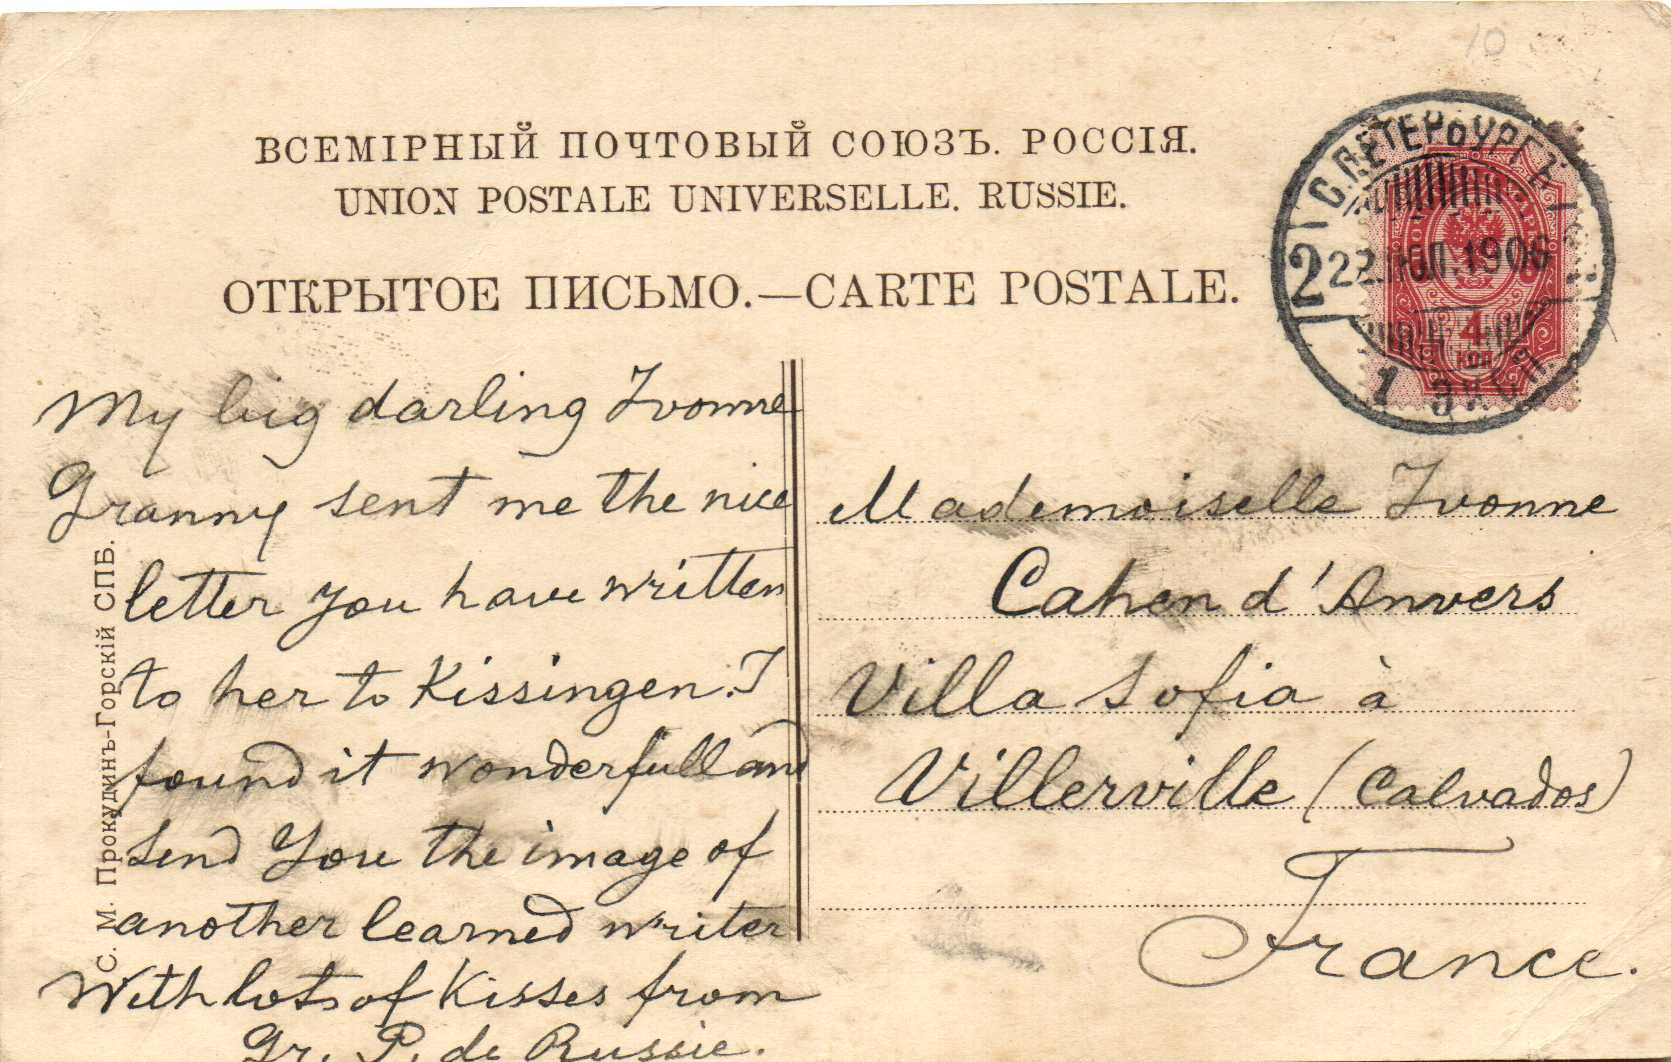 ВСЕМІРНЫЙ ПОЧТОВЫЙ СОЮЗЪ. РОССІЯ.
UNION POSTALE UNIVERSELLE. RUSSIE.
ОТКРЫТОЕ ПИСЬМО.—CARTE POSTALE.
10
С.ПЕТЕРБУРГЪ
2
22.ІЮЛ.1906
1 ЭКСП.
4
КОП
My big darling Yvonne
Granny sent me the nice
letter you have written
to her to Kissingen. I
found it wonderfull and
send You the image of
another learned writer
With lots of Kisses from
Gr. P. de Russie.
Mademoiselle Yvonne
Cahen d'Anvers
Villa Sofia à
Villerville (Calvados)
France.
С. М. Прокудинъ-Горскій СПБ.